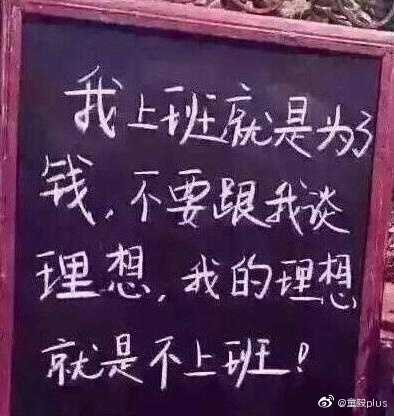 我上班就是为了
钱，不要跟我谈
理想，我的理想
就是不上班！
@童貌plus